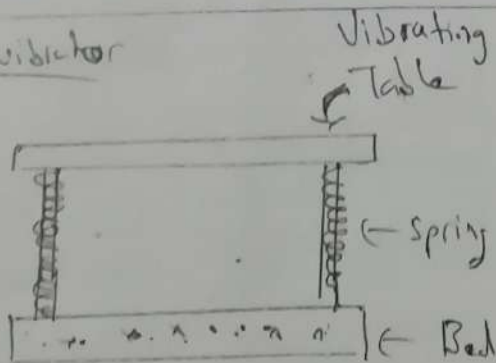 vibrator
Vibrating
Table
← Spring
← Bed